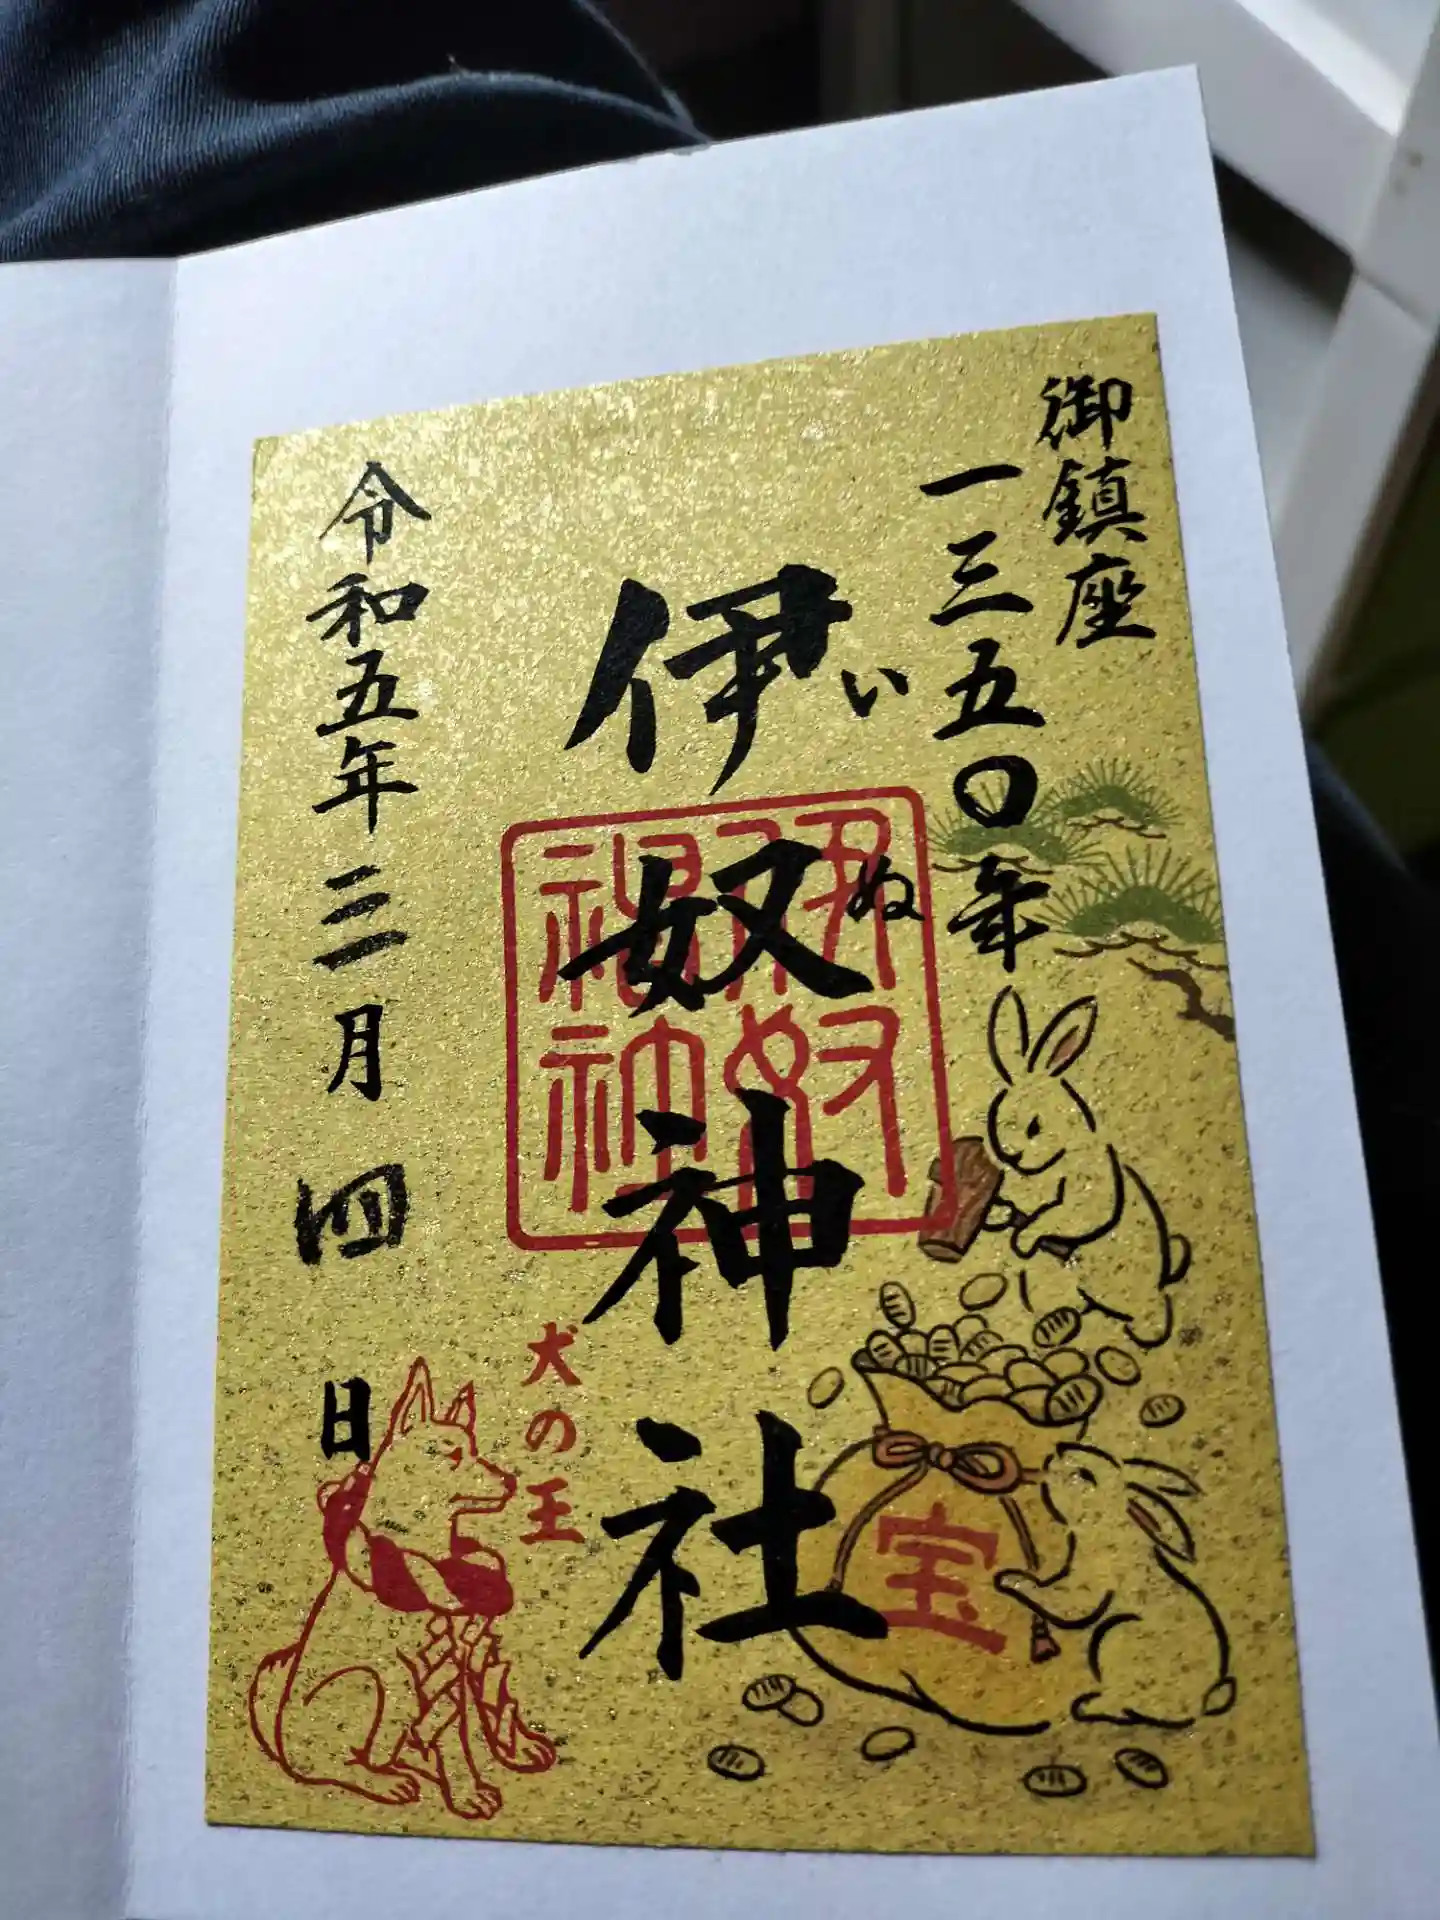 御鎮座
一三五〇年
いぬ
伊奴神社
伊奴
神社
宝
犬の王
令和五年三月四日